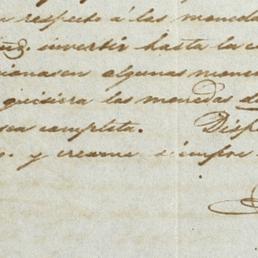 n respecto á las moneda
Vd. invertir hasta la c
cionasen algunas mone
quisiera las monedas de
sea completa. Disp
y creame siempre